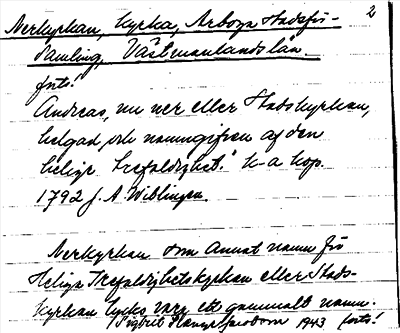 2
Nerkyrkan, kyrka, Arboga stadsför-
samling, Västmanlands län.
forts!
Andreas, nu ner eller Stadskyrkan,
helgad och namngifven af den
helige Trefaldighet." k-a kop.
1792 f. A. Wiblingen.
Nerkyrkan som annat namn för
Heliga Trefaldighetskyrkan eller Stads-
kyrkan tycks vara ett gammalt namn.
Sigbrit 1943 forts!